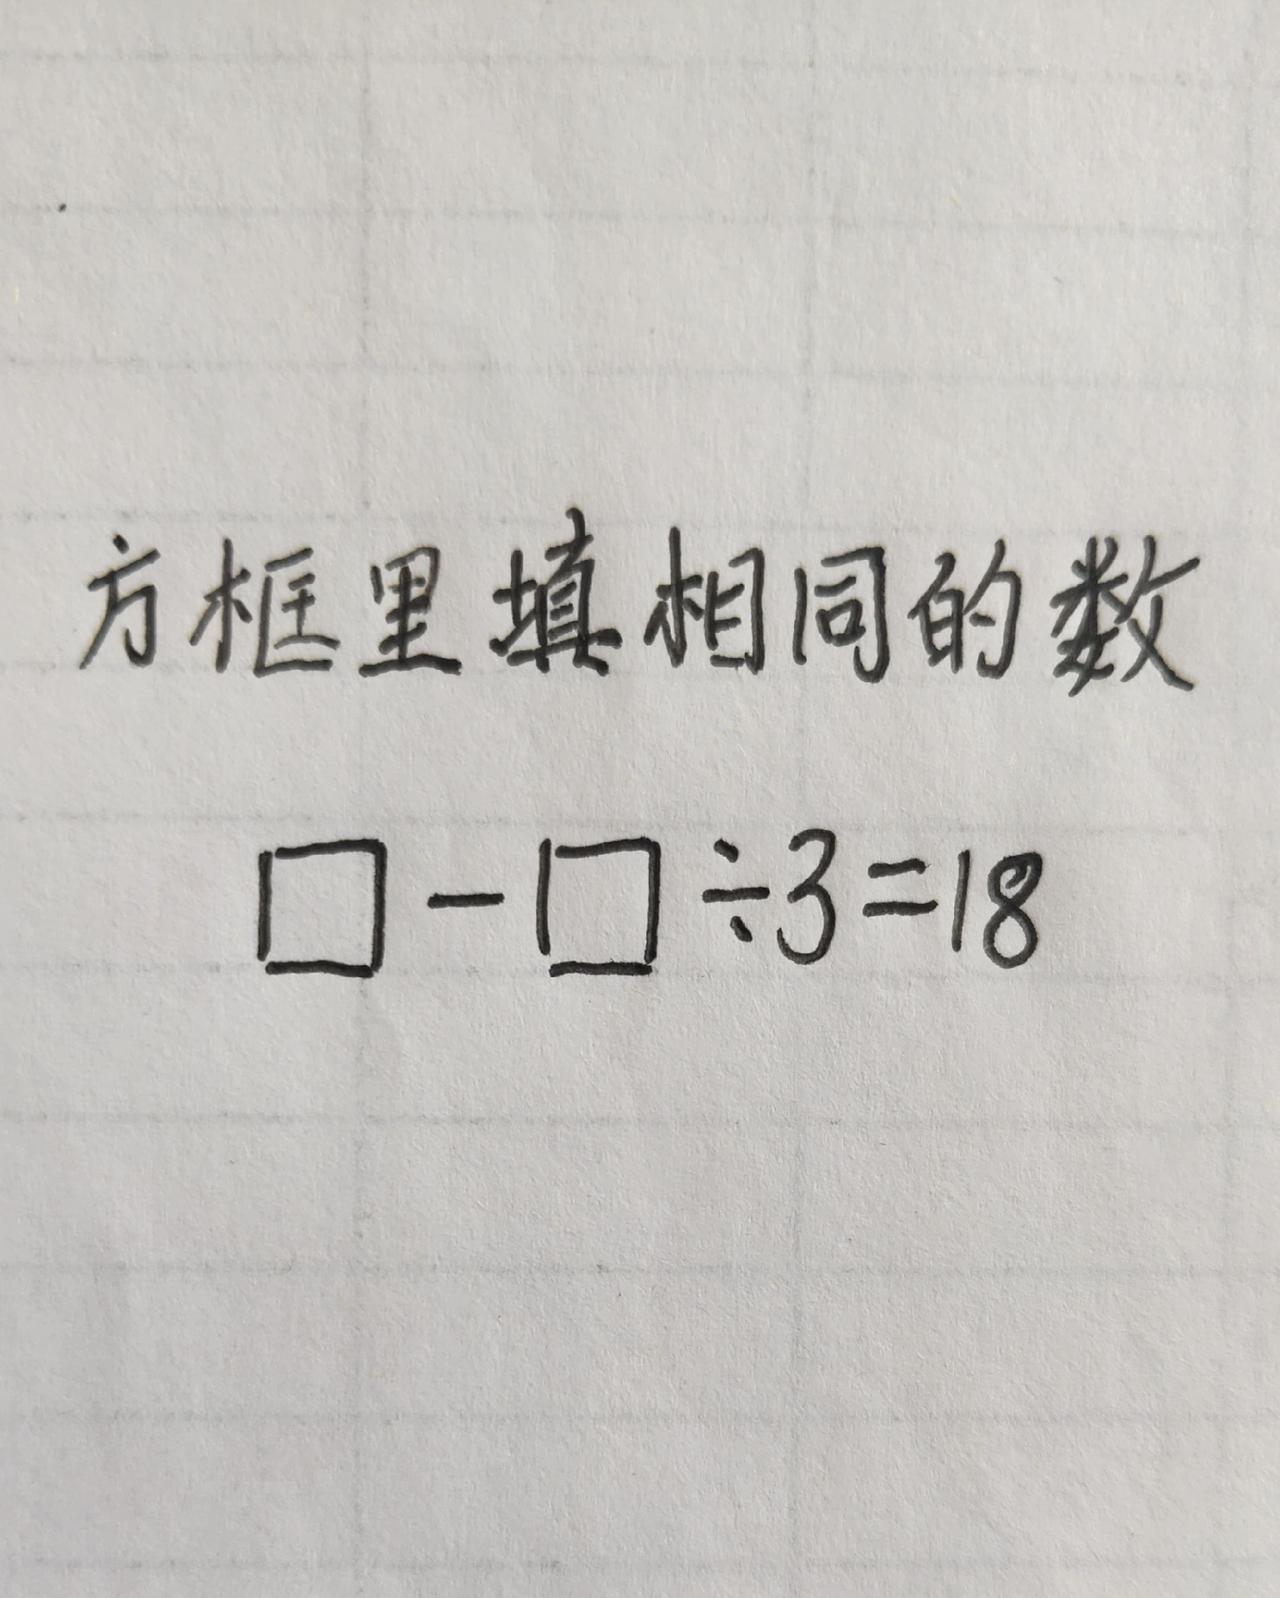 方框里填相同的数
□-□÷3=18